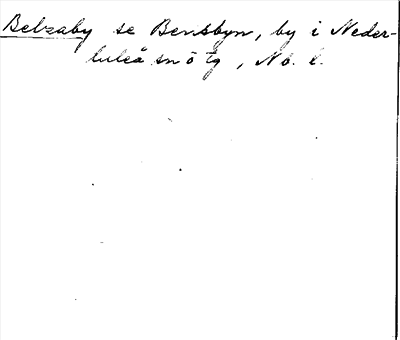 Belzaby se Bensbyn, by i Neder-
luleå sn ö tg, Nb. l.